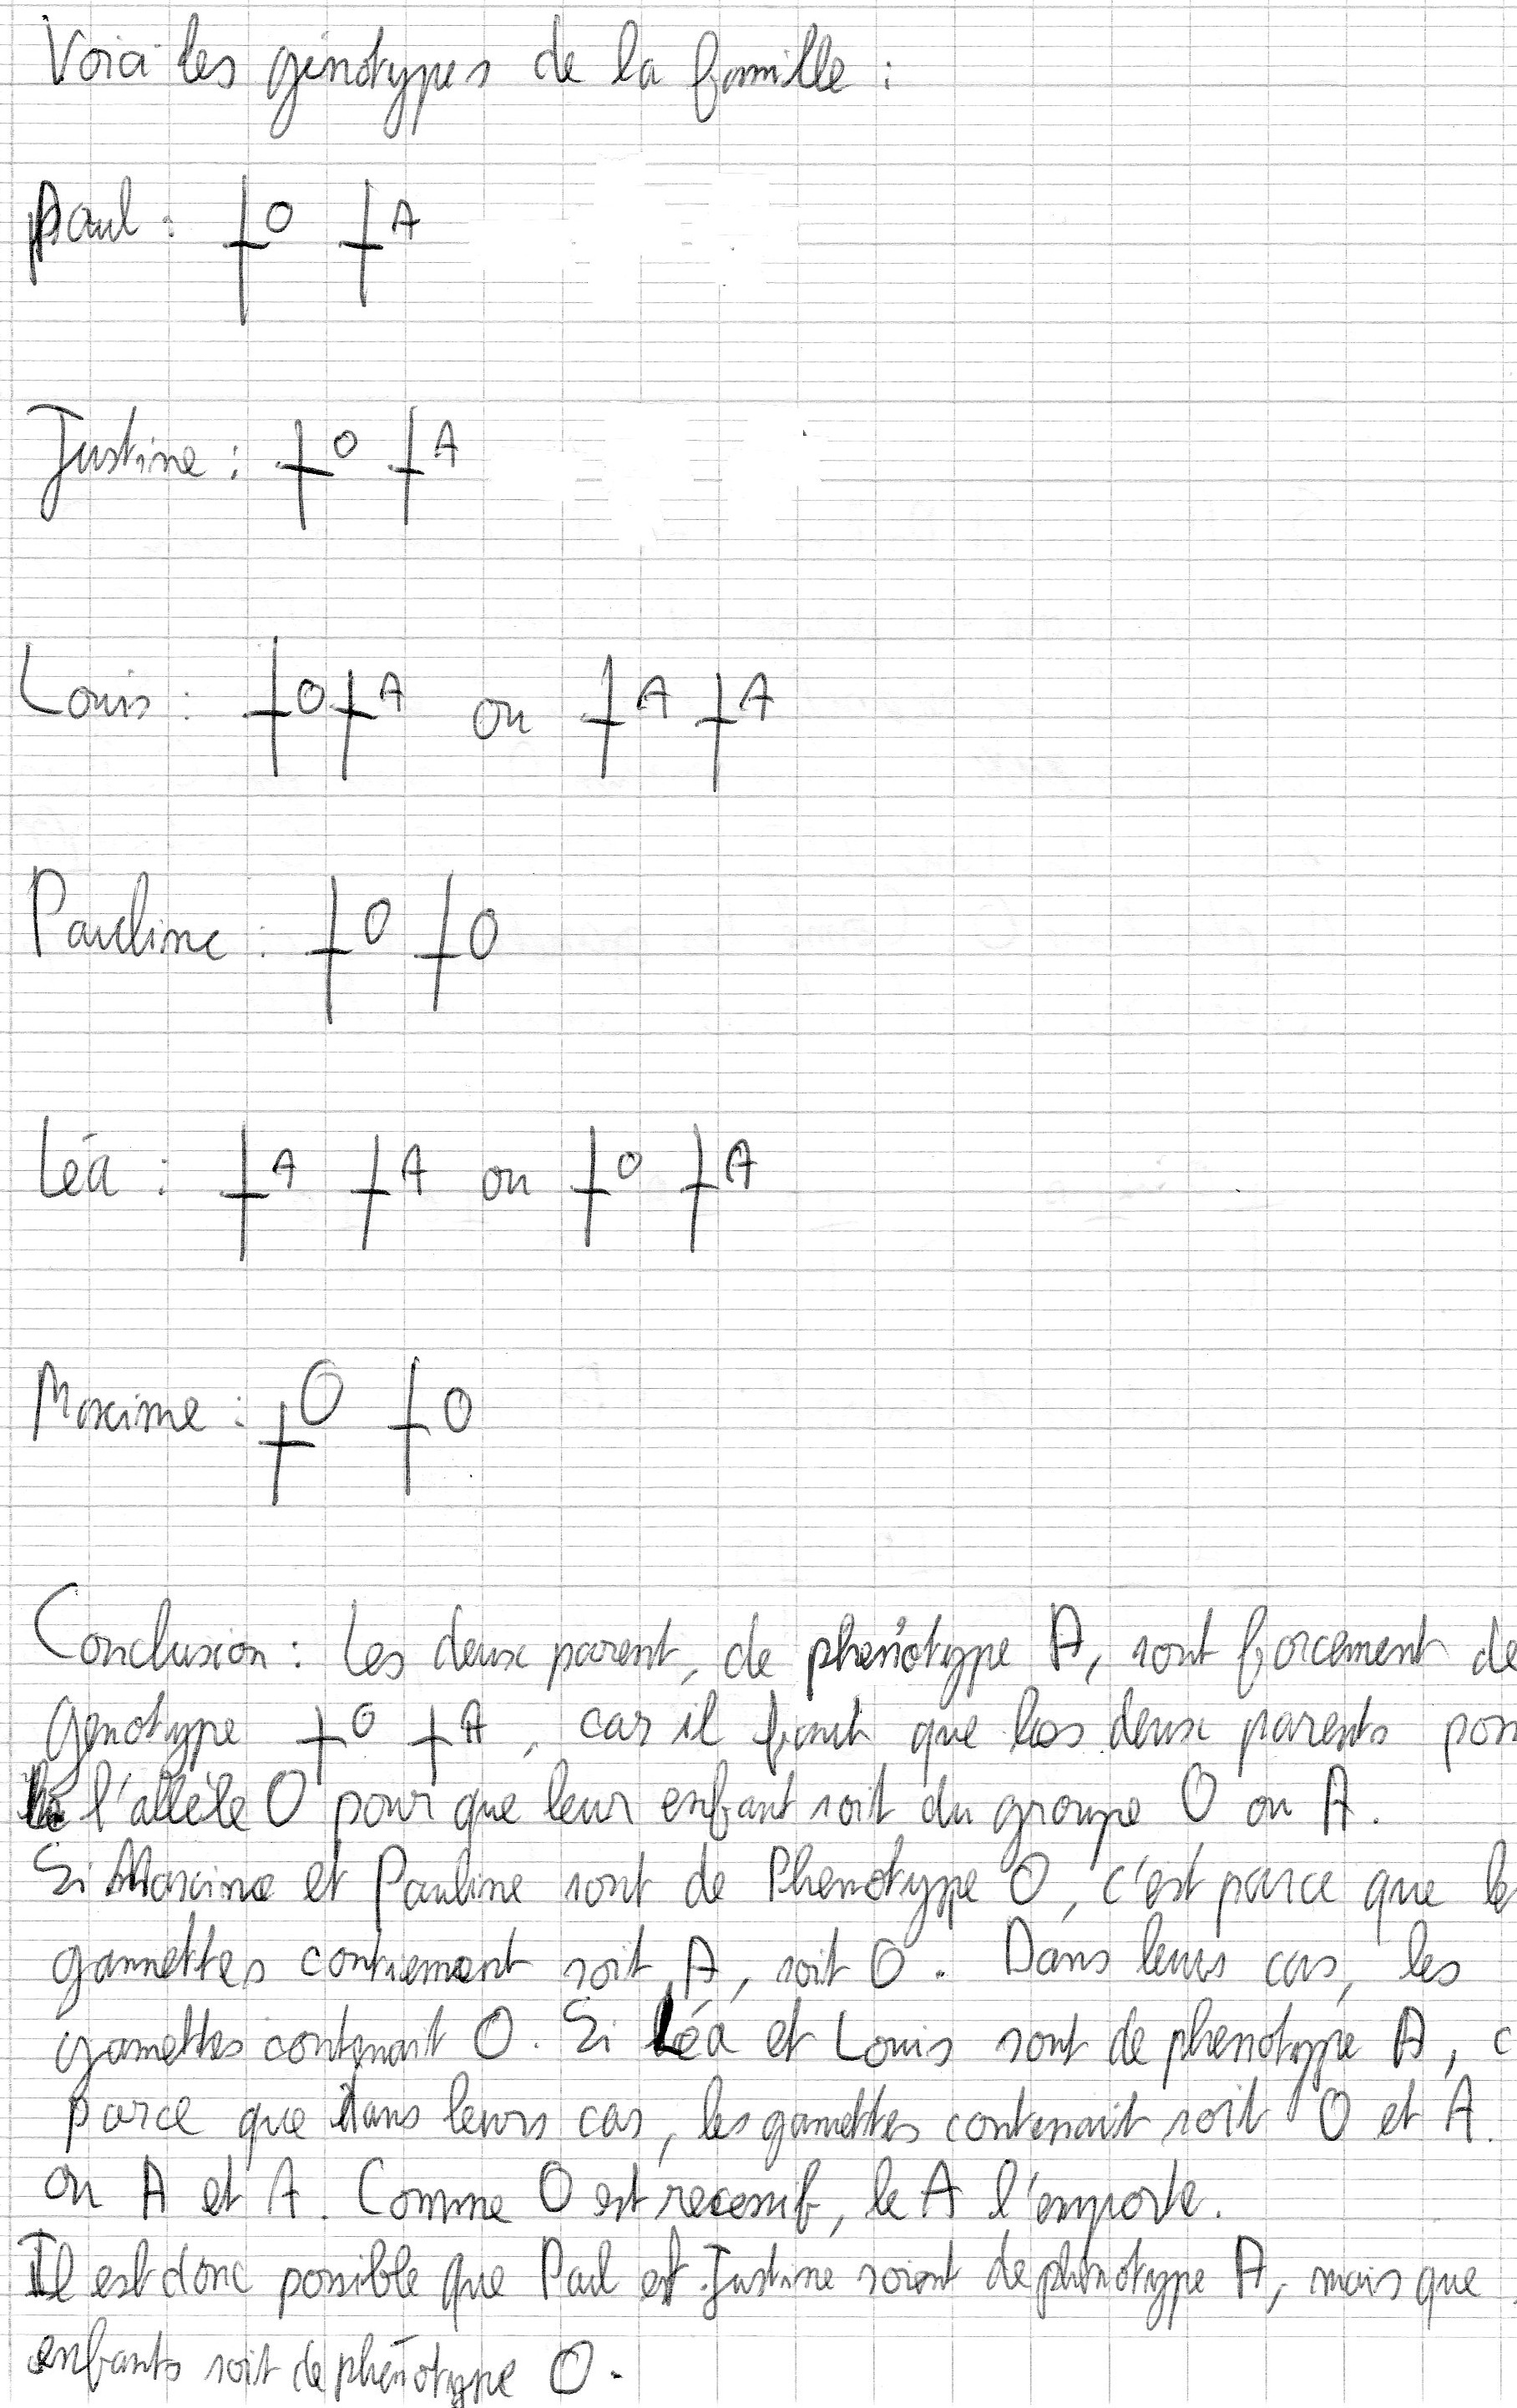 Voici les génotypes de la famille :
Paul : O A
Justine : O A
Louis : O A ou A A
Pauline : O O
Léa : A A ou O A
Maxime : O O
Conclusion : Les deux parent, de phénotype A, sont forcement de
genotype O A, car il faut que les deux parents poss
l'allèle O pour que leur enfant soit du groupe O ou A.
Si Maxime et Pauline sont de Phenotype O, c'est parce que le
gamettes contiennent soit A, soit O. Dans leurs cas, les
gamettes contenait O. Si Léa et Louis sont de phenotype A, c
parce que dans leurs cas, les gamettes contenait soit O et A.
ou A et A. Comme O est recessif, le A l'emporte.
Il est donc possible que Paul et Justine soient de phénotype A, mais que
enfants soit de phénotype O.